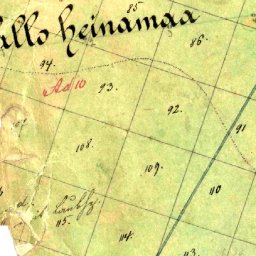 85
allo heinamaa
86
94.
Ad 10
93.
92.
91
108.
109.
110
115.
114.
113.